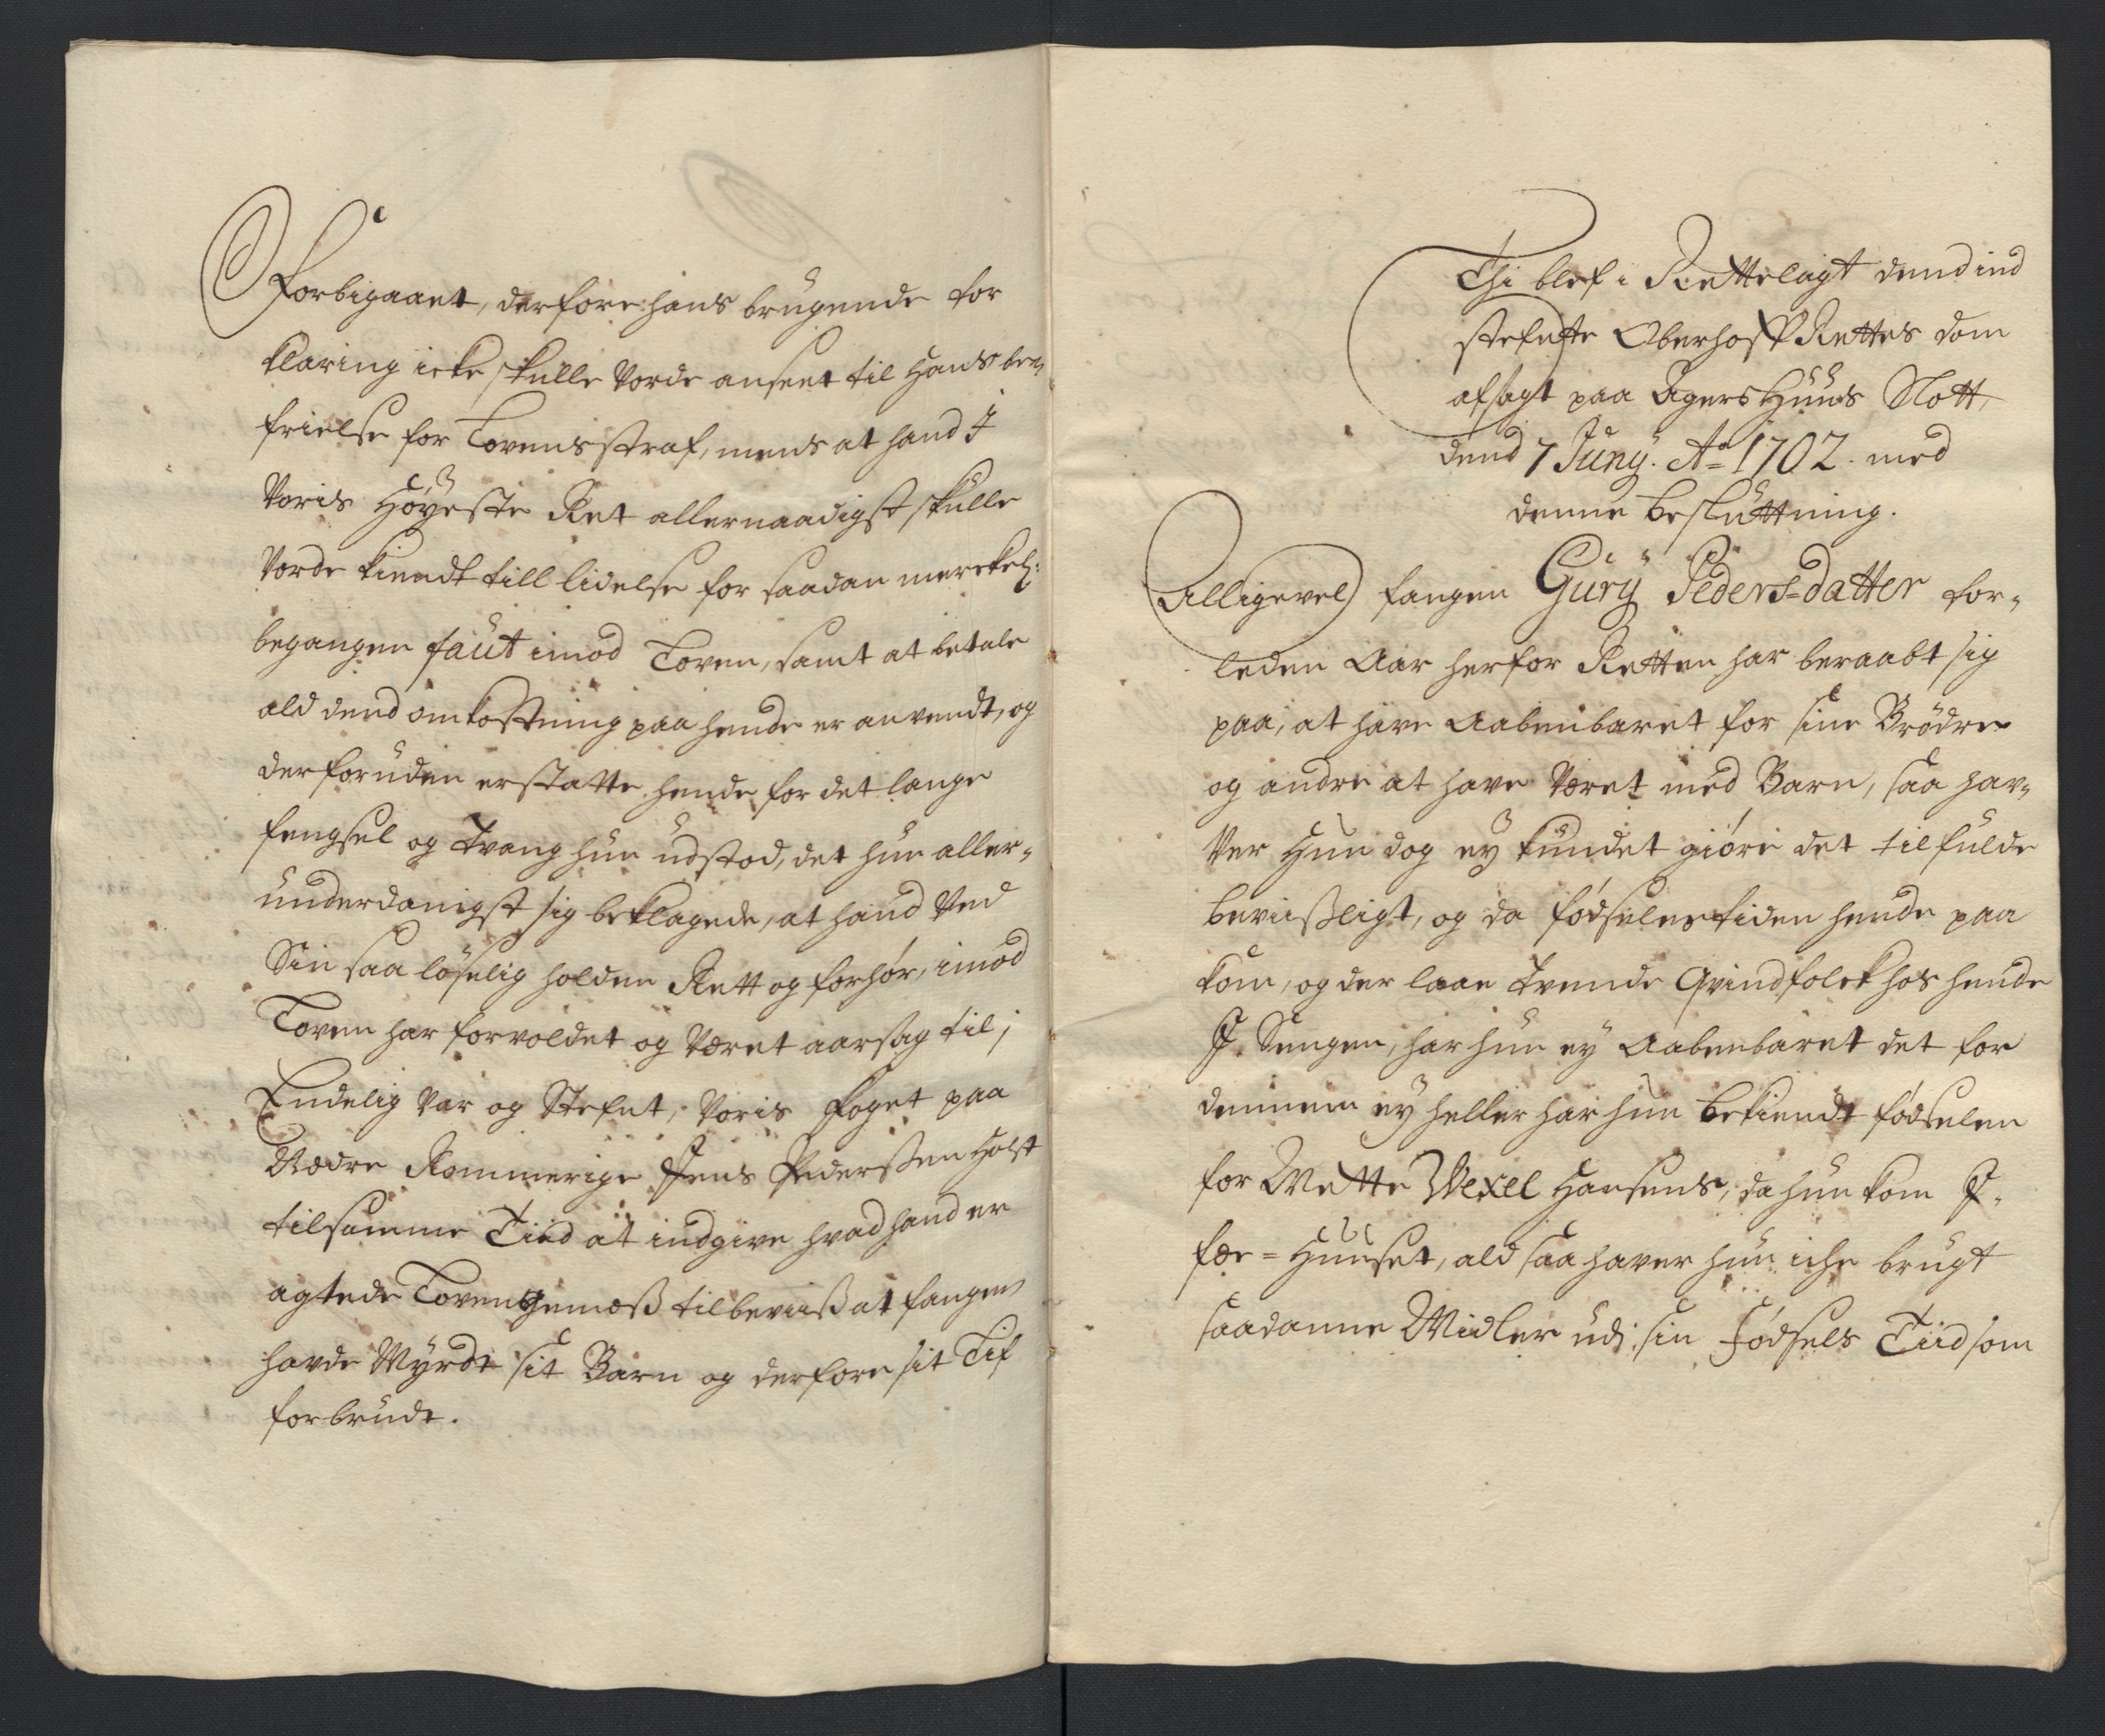 Forbigaaet, derfore hans brugende for
klaring icke skulle vorde anseet til Hans be¬
frielse for Lovens straf, mens at hand I
Voris Høyeste Ret allernaadigst skulle
Vorde kiendt till lidelse for saadan merckel:
begangen faut imod Loven, samt at betale
ald dend omkostning paa hende er anvendt, og
derforuden erstatte hende for det lange
fengsel og tvang hun udstod, det hun aller¬
underdanigst sig beklagede, at hand Ved
Sin saa løselig holden Rett og forhør, imod
Loven har forvoldet og Været aarsag til;
Endelig var og Stefnt, Voris foget paa
Nedre Rommerige Jens Pederssen Holst
til samme Tiid at indgive hvad hand er
agtede Lovens gemæß til beviiß at fangen
havde Myrdt sit Barn og derfore sit Lif
forbrudt.
Thi blef i Rettelagt dend ind
stefnte Oberhoff Rettes dom
afsagt paa Agershuus Slott,
dend 7 Juny. Ao 1702. med
denne beslutning.
Alligevel fangen Gury Peders=datter for¬
leden Aar herfor Retten har beraabt sig
paa, at have Aabenbaret for sine Brødre
og andre at have Været med Barn, saa ha¬
ver Hun dog ey kundet giøre det til fulde
beviißligt, og da fødselens tiden hende paa
kom, og der laae tvende Qvindfolck hos hende
I Sengen, har hun ey Aabenbaret det for
dennem ey heller har hun bekiendt fødselen
for Mette Wexel Hansens, da hun kom I
fæe=Huuset, ald saa haver hun iche brugt
saadanne Midler udi sin Fødsels Tiid som